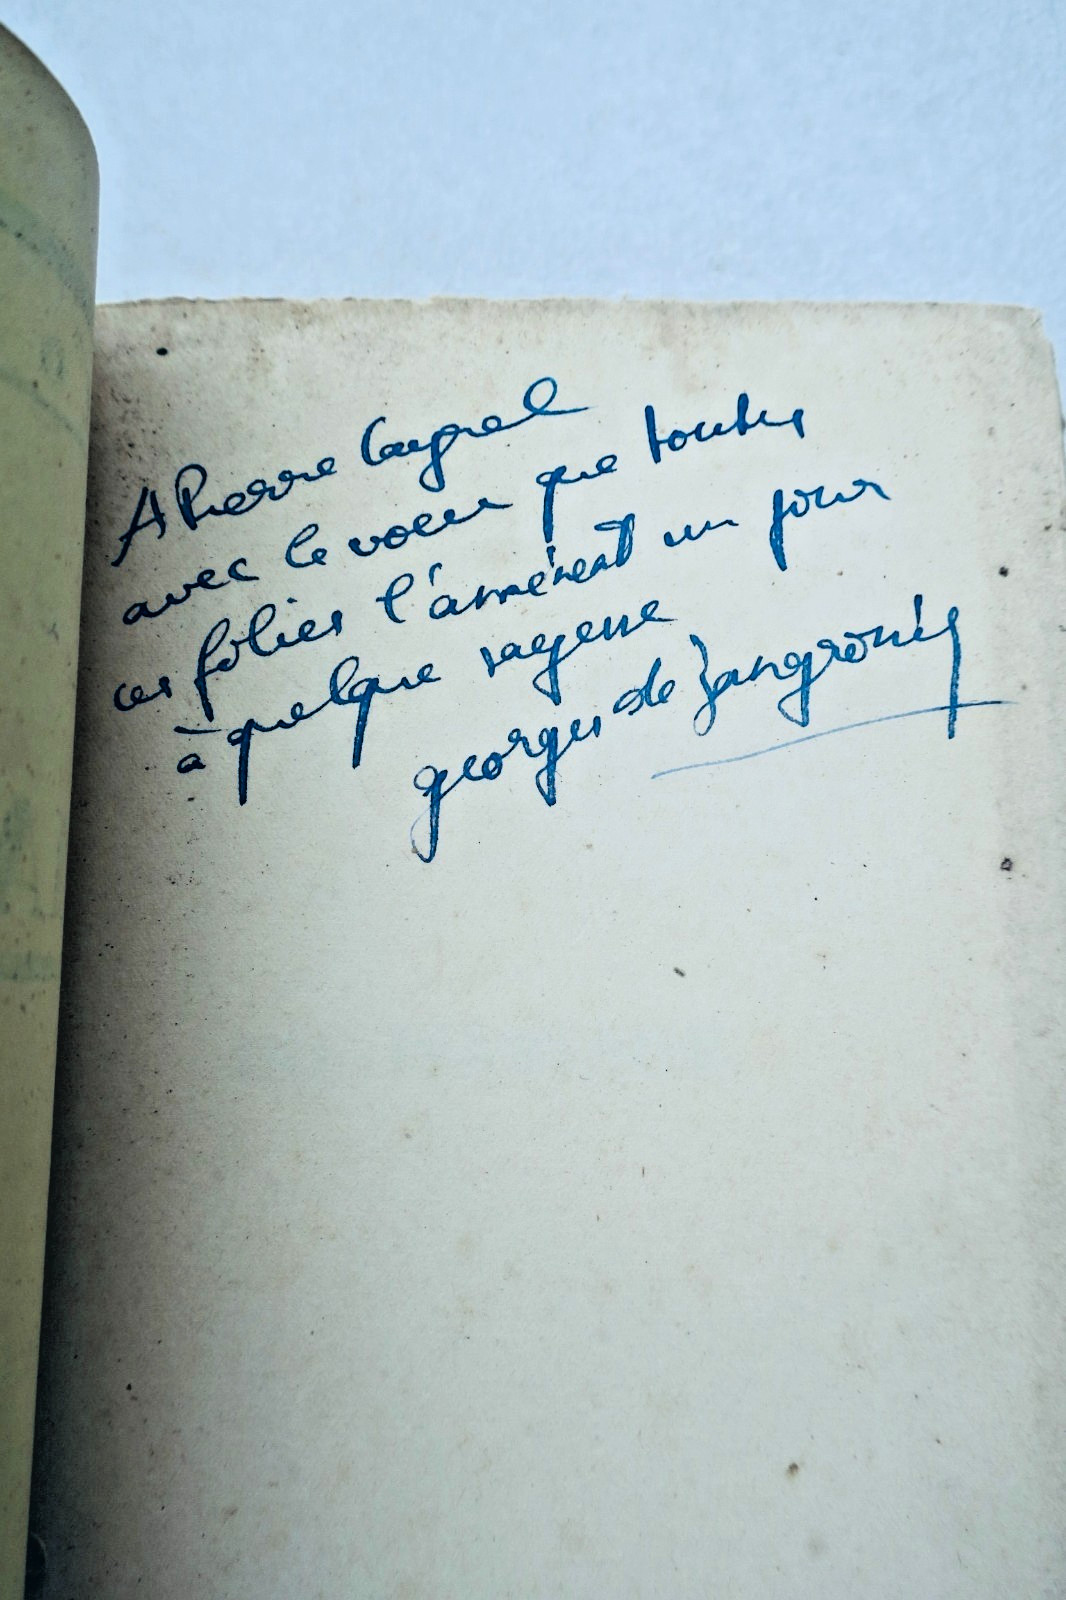 A Pierre Cayrel
avec le voeu que toutes
ces folies l'amènent un jour
à quelque sagesse
georges de Zangronéy